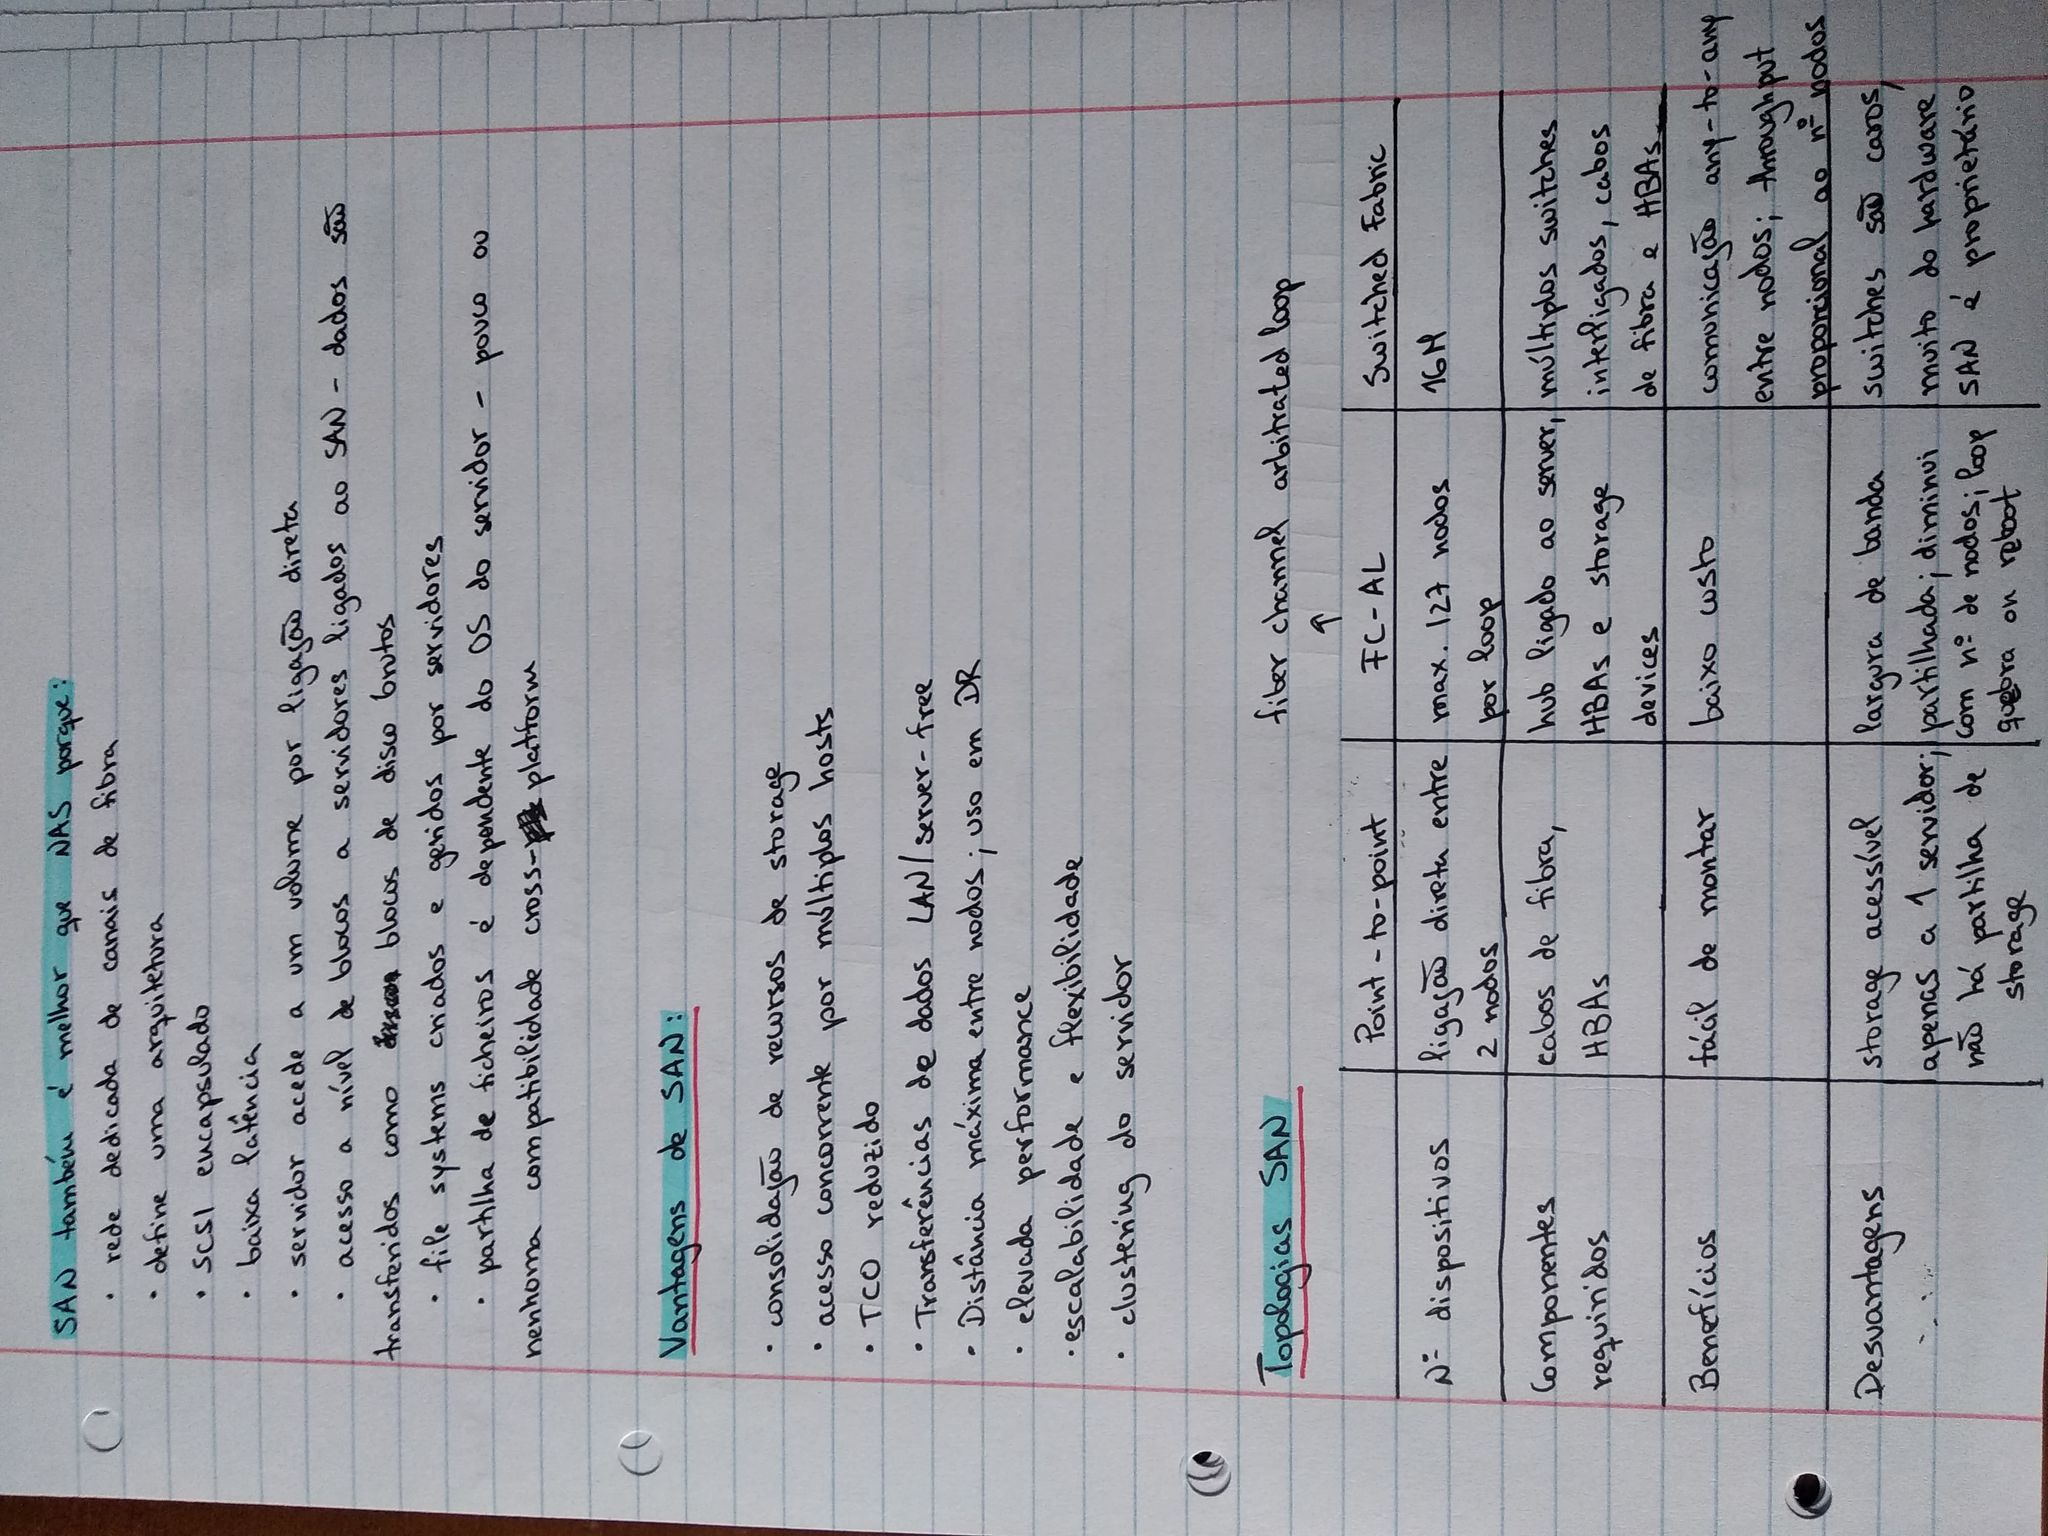 SAN também é melhor que NAS porque:
• rede dedicada de canais de fibra
• define uma arquitetura
• SCSI encapsulado
• baixa latência
• servidor acede a um volume por ligação direta
• acesso a nível de blocos a servidores ligados ao SAN - dados são
transferidos como blocos de disco brutos
• file systems criados e geridos por servidores
• partilha de ficheiros é dependente do OS do servidor - pouco ou
nenhuma compatibilidade cross-platform
Vantagens de SAN:
• consolidação de recursos de storage
• acesso concorrente por múltiplos hosts
• TCO reduzido
• Transferências de dados LAN/server-free
• Distância máxima entre nodos; uso em DR
• elevada performance
• escalabilidade e flexibilidade
• clustering do servidor
Topologias SAN
fiber channel arbitrated loop
↑
Point-to-point FC-AL Switched Fabric
Nº dispositivos ligação direta entre max. 127 nodos 16M
2 nodos por loop
Componentes cabos de fibra, hub ligado ao server, múltiplos switches
requiridos HBAs HBAs e storage interligados, cabos
devices de fibra e HBAs
Benefícios fácil de montar baixo custo comunicação any-to-any
entre nodos; throughput
proporcional ao nº nodos
Desvantagens storage acessível largura de banda switches são caros,
apenas a 1 servidor; partilhada; diminui muito do hardware
não há partilha de com nº de nodos; loop SAN é proprietário
storage quebra on reboot